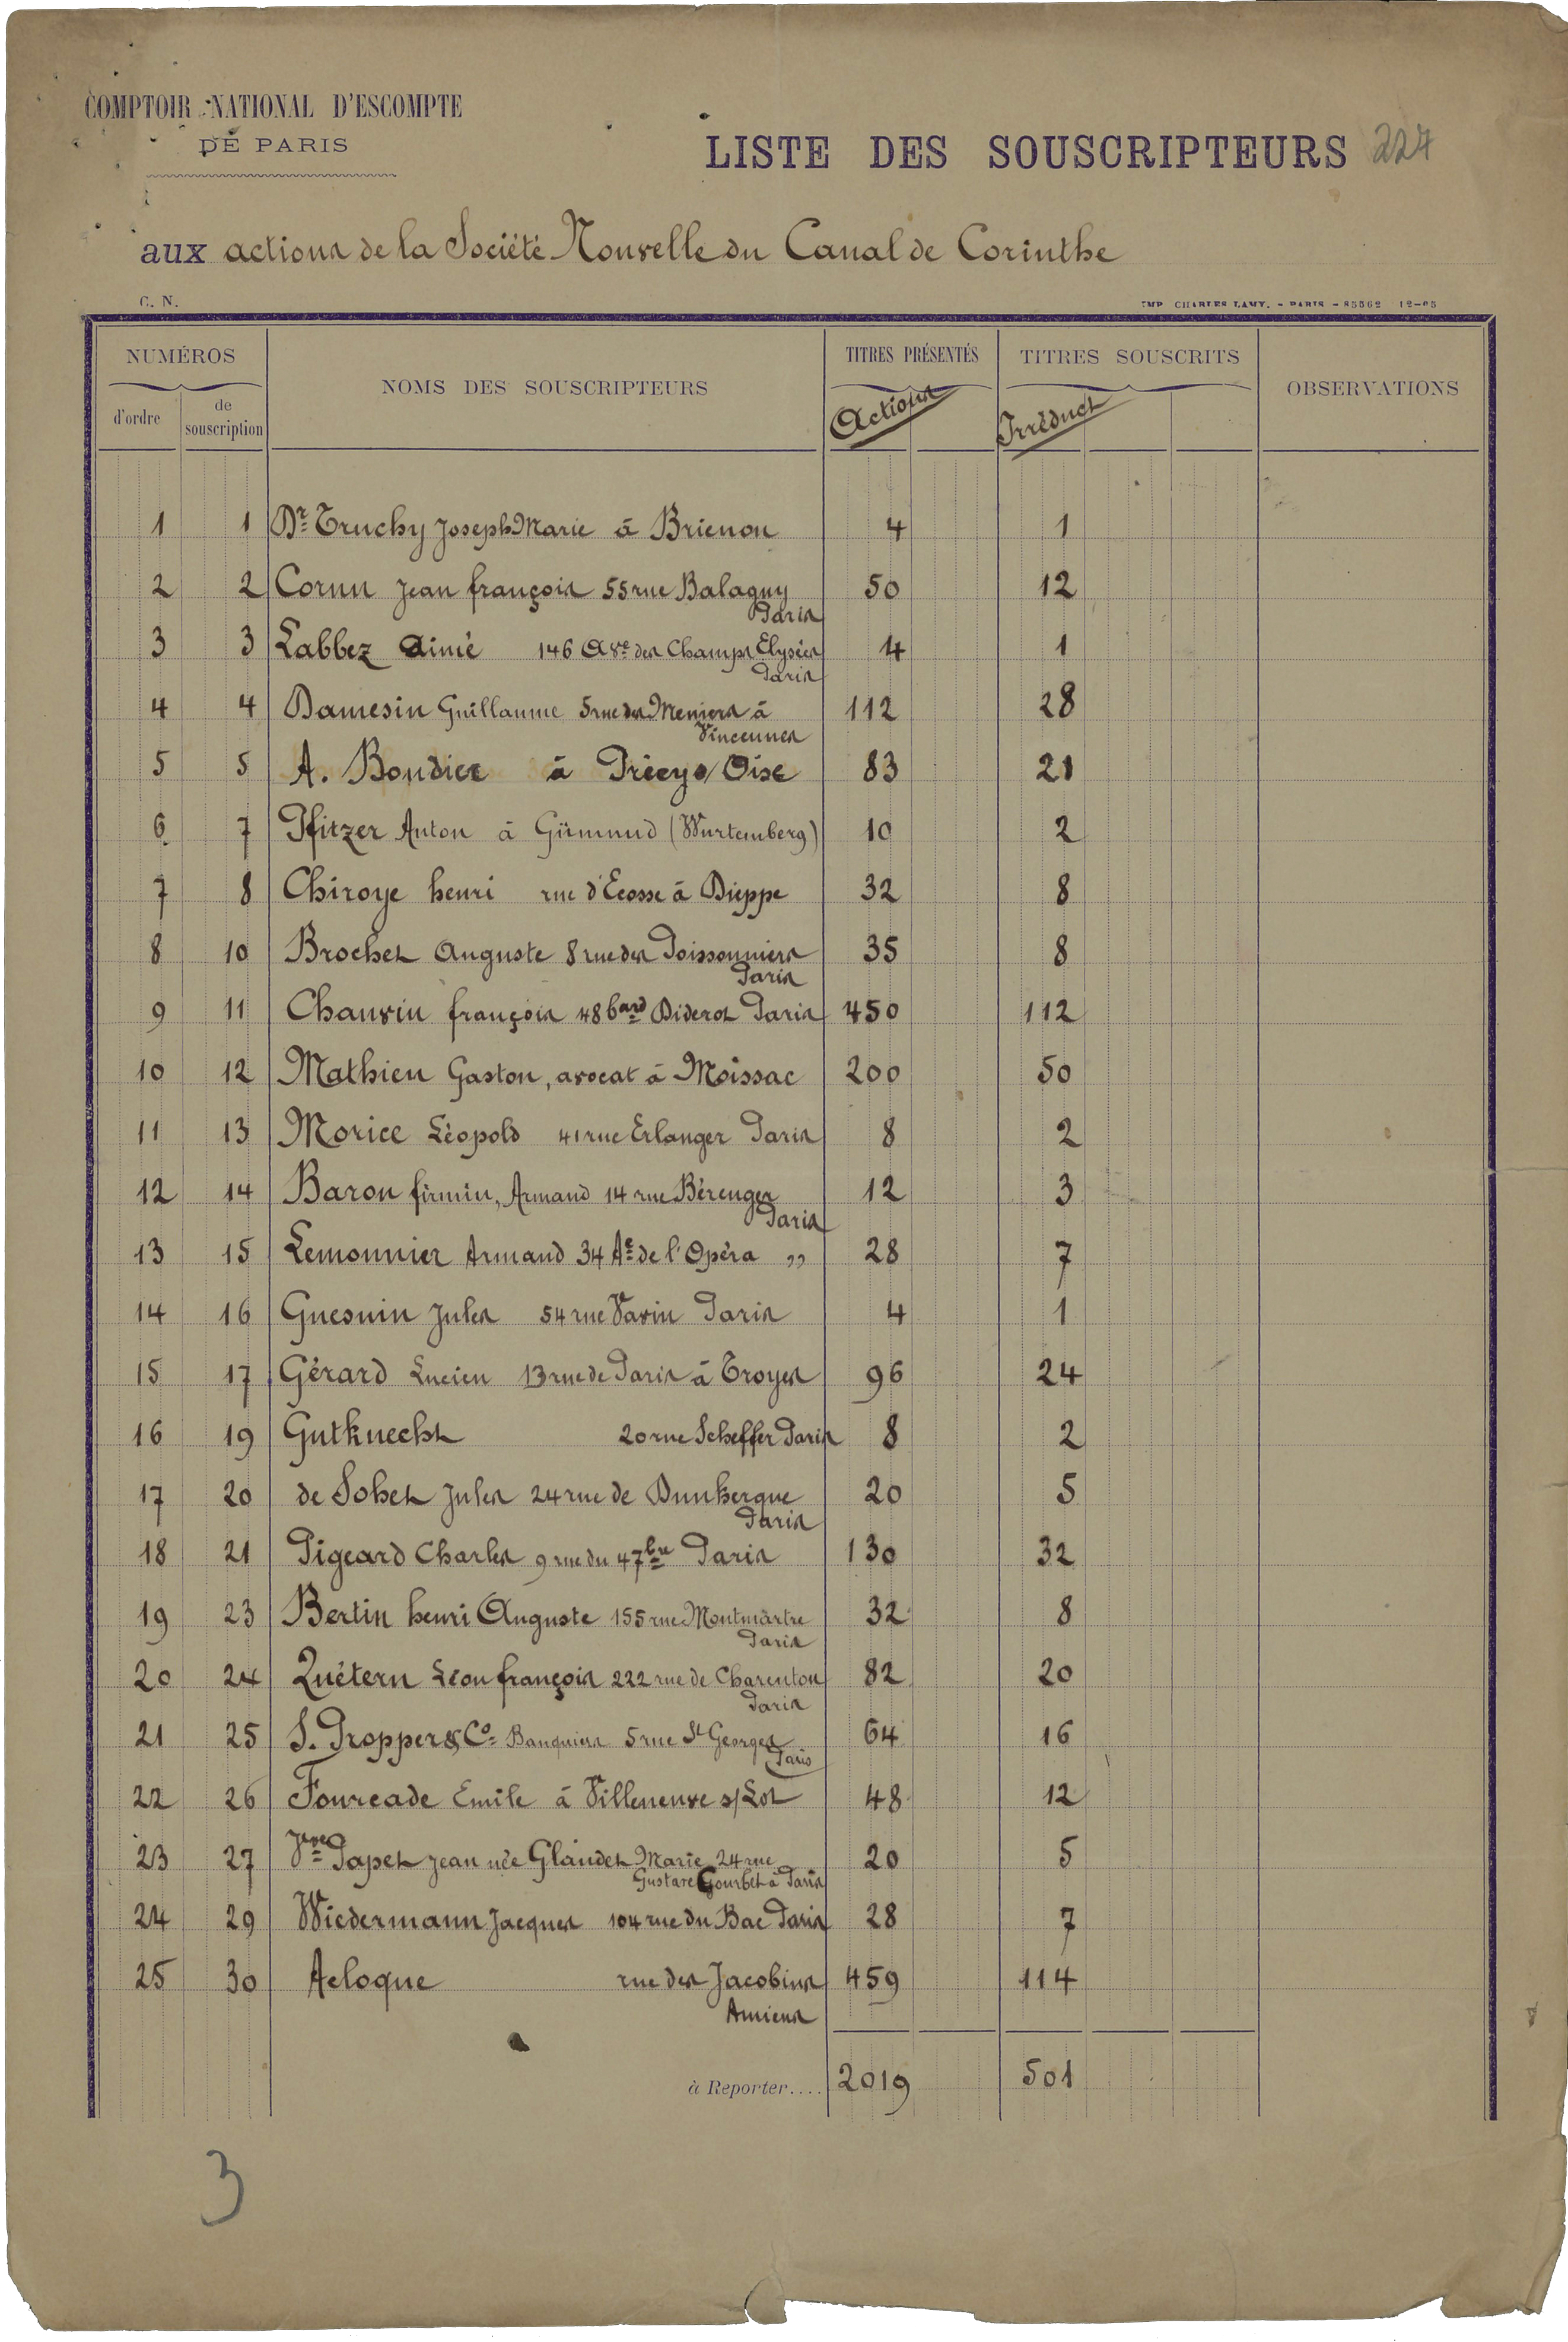 COMPTOIR NATIONAL D'ESCOMPTE
DE PARIS
LISTE DES SOUSCRIPTEURS 227
aux actions de la Société Nouvelle du Canal de Corinthe
C. N.
IMP. CHARLES LAMY. - PARIS - 85562 12-05
NUMÉROS
d'ordre
de souscription
NOMS DES SOUSCRIPTEURS
TITRES PRÉSENTÉS
Actions
TITRES SOUSCRITS
Irréduct
OBSERVATIONS
1 1 Dr Truchy Joseph Marie à Brienon 4 1
2 2 Cornu Jean françois 55 rue Balagny 50 12
Paris
3 3 Labbez Aimé 146 Ave des Champs Elysées 4 1
Paris
4 4 Damesin Guillaume 5 rue des Meniers à 112 28
Vincennes
5 5 A. Boudier à Précy s/ Oise 83 21
6 7 Pfitzer Anton à Gümund (Wurtemberg) 10 2
7 8 Chiroye henri rue d'Ecosse à Dieppe 32 8
8 10 Brochet Auguste 8 rue des Poissonniers 35 8
Paris
9 11 Chauvin françois 48 bard Diderot Paris 450 112
10 12 Mathieu Gaston, avocat à Moissac 200 50
11 13 Morice Léopold 41 rue Erlanger Paris 8 2
12 14 Baron firmin, Armand 14 rue Bérenger 12 3
Paris
13 15 Lemonnier Armand 34 Ae de l'Opéra ,, 28 7
14 16 Guesnin Jules 54 rue Vavin Paris 4 1
15 17 Gérard Lucien 13 rue de Paris à Troyes 96 24
16 19 Gutknecht 20 rue Scheffer Paris 8 2
17 20 de Sohet Jules 24 rue de Dunkerque 20 5
Paris
18 21 Pigeard Charles 9 rue du 47 bre Paris 130 32
19 23 Bertin henri Auguste 155 rue Montmartre 32 8
Paris
20 24 Quétern Léon françois 222 rue de Charenton 82 20
Paris
21 25 S. Propper & Co Banquiers 5 rue St Georges 64 16
Paris
22 26 Fourcade Emile à Villeneuve s/Lot 48 12
23 27 Vve Papet Jean née Glaudet Marie 24 rue 20 5
Gustave Courbet à Paris
24 29 Wiedermann Jacques 104 rue du Bac Paris 28 7
25 30 Acloque rue des Jacobins 459 114
Amiens
à Reporter.... 2019 501
3